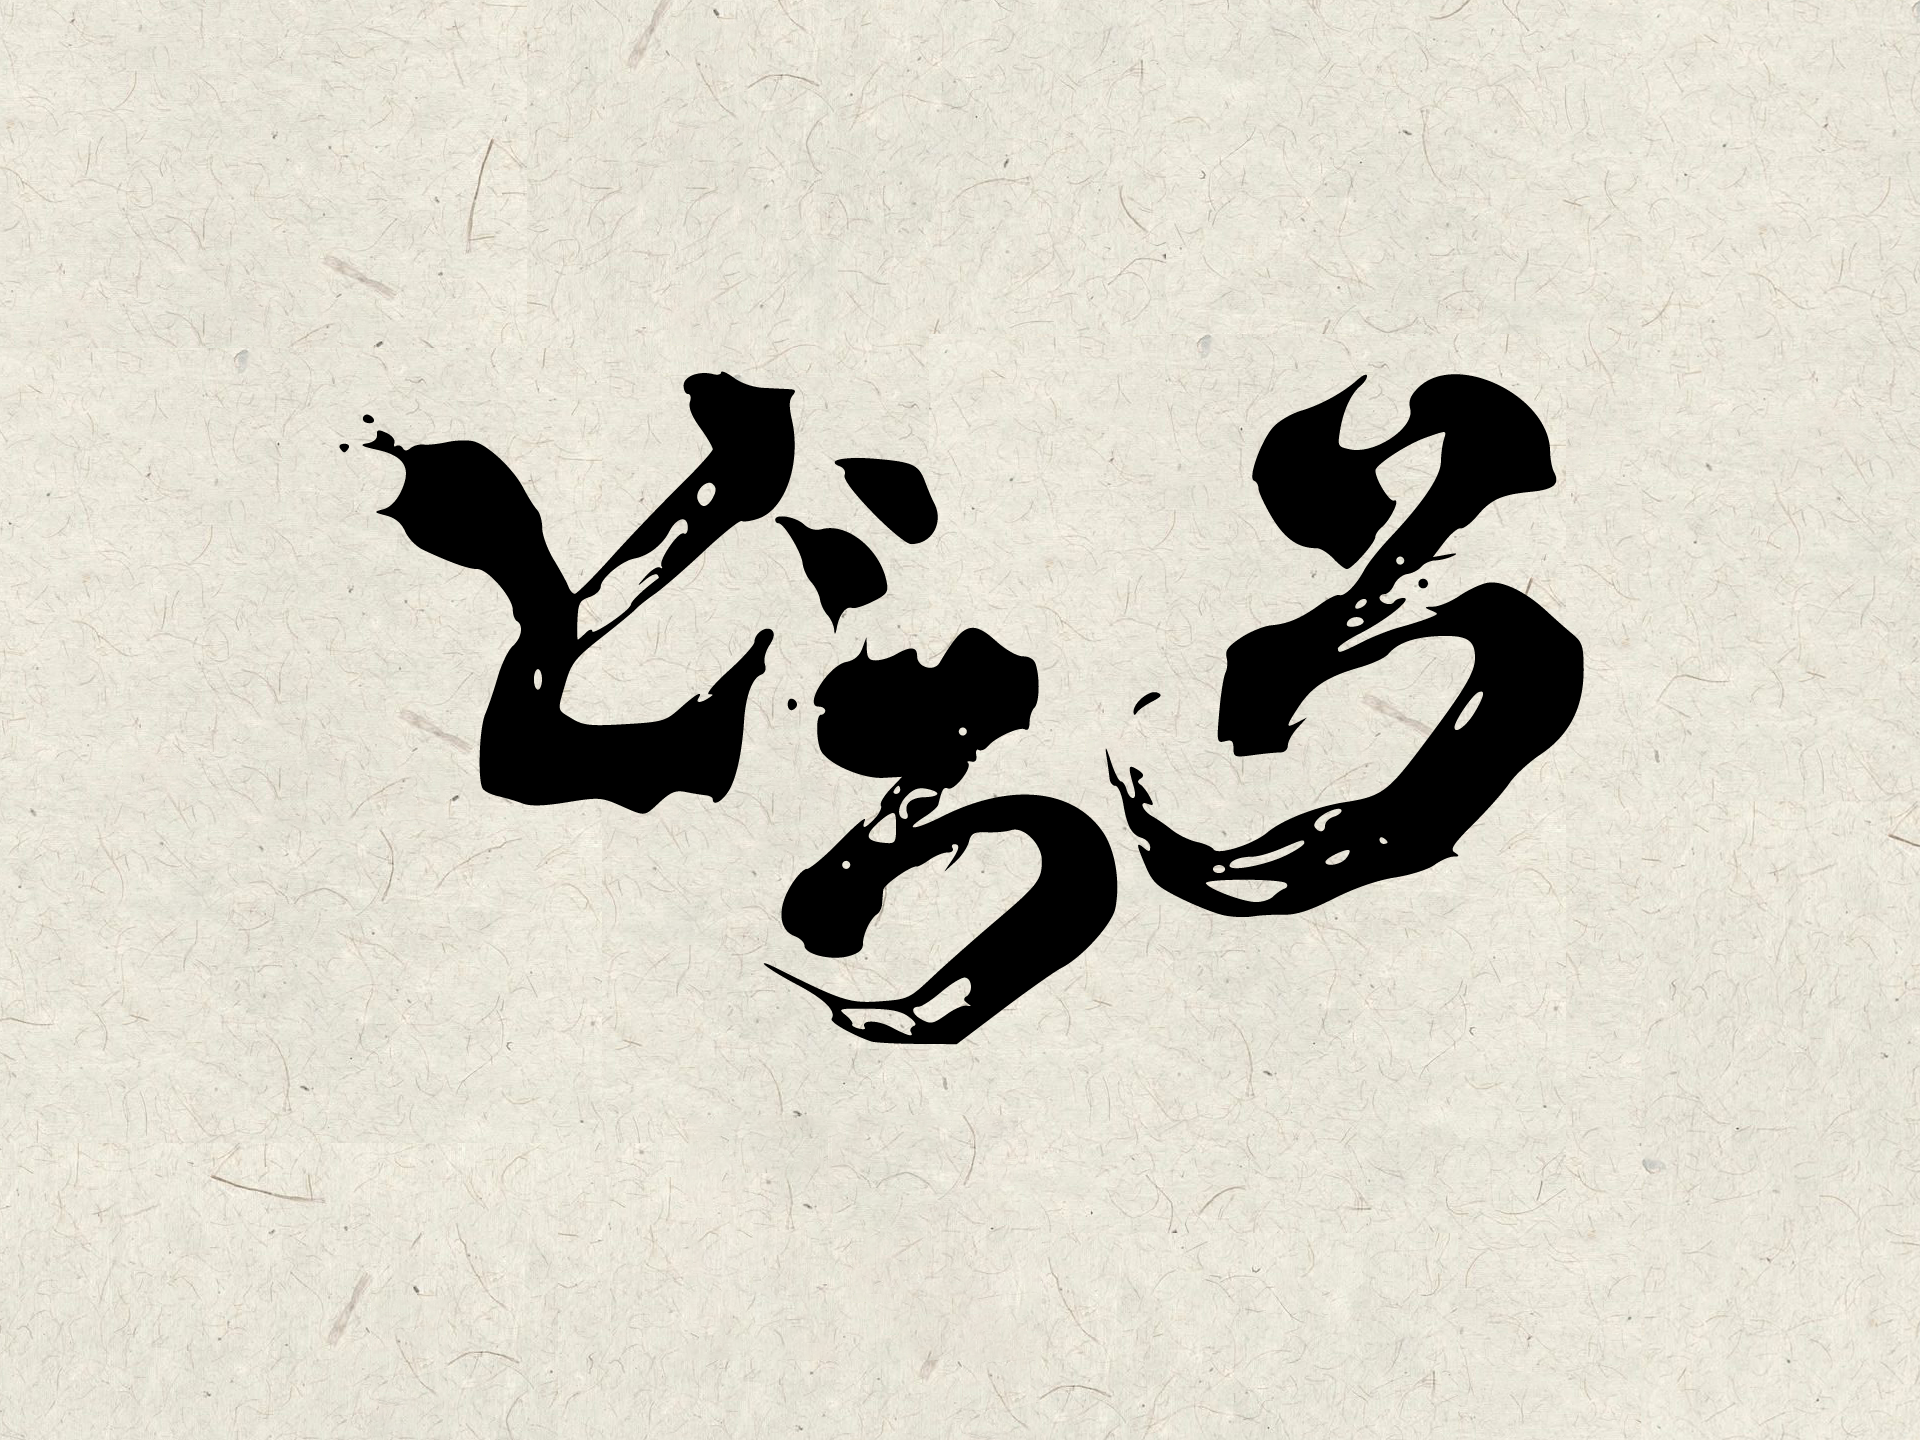 どろろ